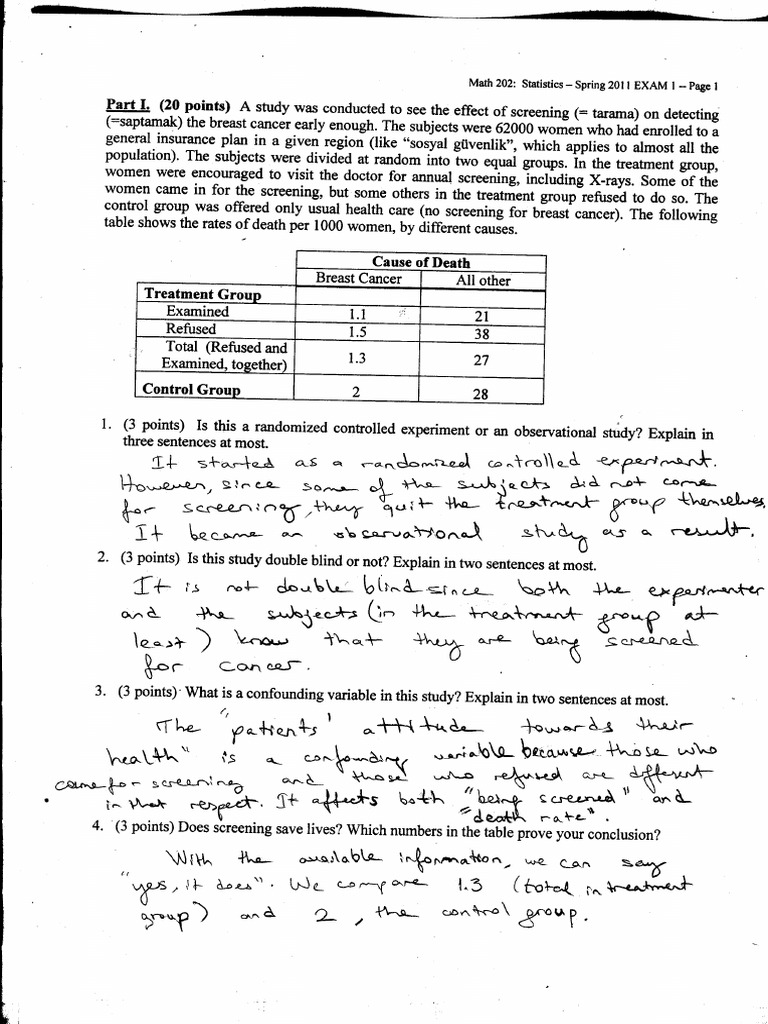 Math 202: Statistics – Spring 2011 EXAM 1 -- Page 1
Part I. (20 points) A study was conducted to see the effect of screening (= tarama) on detecting
(=saptamak) the breast cancer early enough. The subjects were 62000 women who had enrolled to a
general insurance plan in a given region (like "sosyal güvenlik", which applies to almost all the
population). The subjects were divided at random into two equal groups. In the treatment group,
women were encouraged to visit the doctor for annual screening, including X-rays. Some of the
women came in for the screening, but some others in the treatment group refused to do so. The
control group was offered only usual health care (no screening for breast cancer). The following
table shows the rates of death per 1000 women, by different causes.
Cause of Death
Breast Cancer All other
Treatment Group
Examined 1.1 21
Refused 1.5 38
Total (Refused and
Examined, together) 1.3 27
Control Group 2 28
1. (3 points) Is this a randomized controlled experiment or an observational study? Explain in
three sentences at most.
It started as a randomized controlled experiment.
However, since some of the subjects did not come
for screening, they quit the treatment group themselves.
It became an observational study as a result.
2. (3 points) Is this study double blind or not? Explain in two sentences at most.
It is not double blind since both the experimenter
and the subjects (in the treatment group at
least) know that they are being screened
for cancer.
3. (3 points) What is a confounding variable in this study? Explain in two sentences at most.
The "patients' attitude towards their
health" is a confounding variable because those who
came for screening and those who refused are different
in that respect. It affects both "being screened" and
"death rate".
4. (3 points) Does screening save lives? Which numbers in the table prove your conclusion?
With the available information, we can say
"yes, it does". We compare 1.3 (total in treatment
group) and 2, the control group.